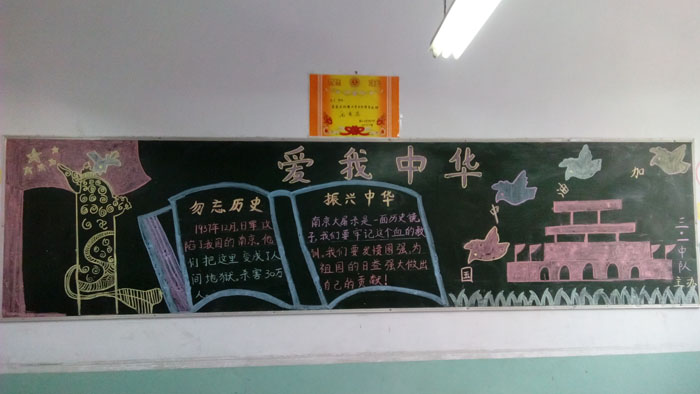 爱我中华
勿忘历史
1937年12月,日军攻
陷了我国的南京,他
们把这里变成了人
间地狱,杀害30万
人
振兴中华
南京大屠杀是一面历史镜
子,我们要牢记这个血的教
训,我们要发愤图强,为
祖国的日益强大做出
自己的贡献!
中国加油
三.一中队
主办